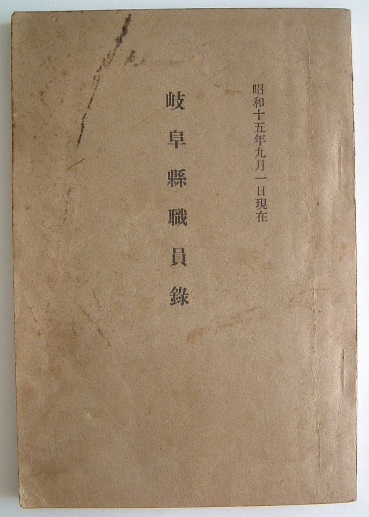 昭和十五年九月一日現在
岐阜縣職員錄